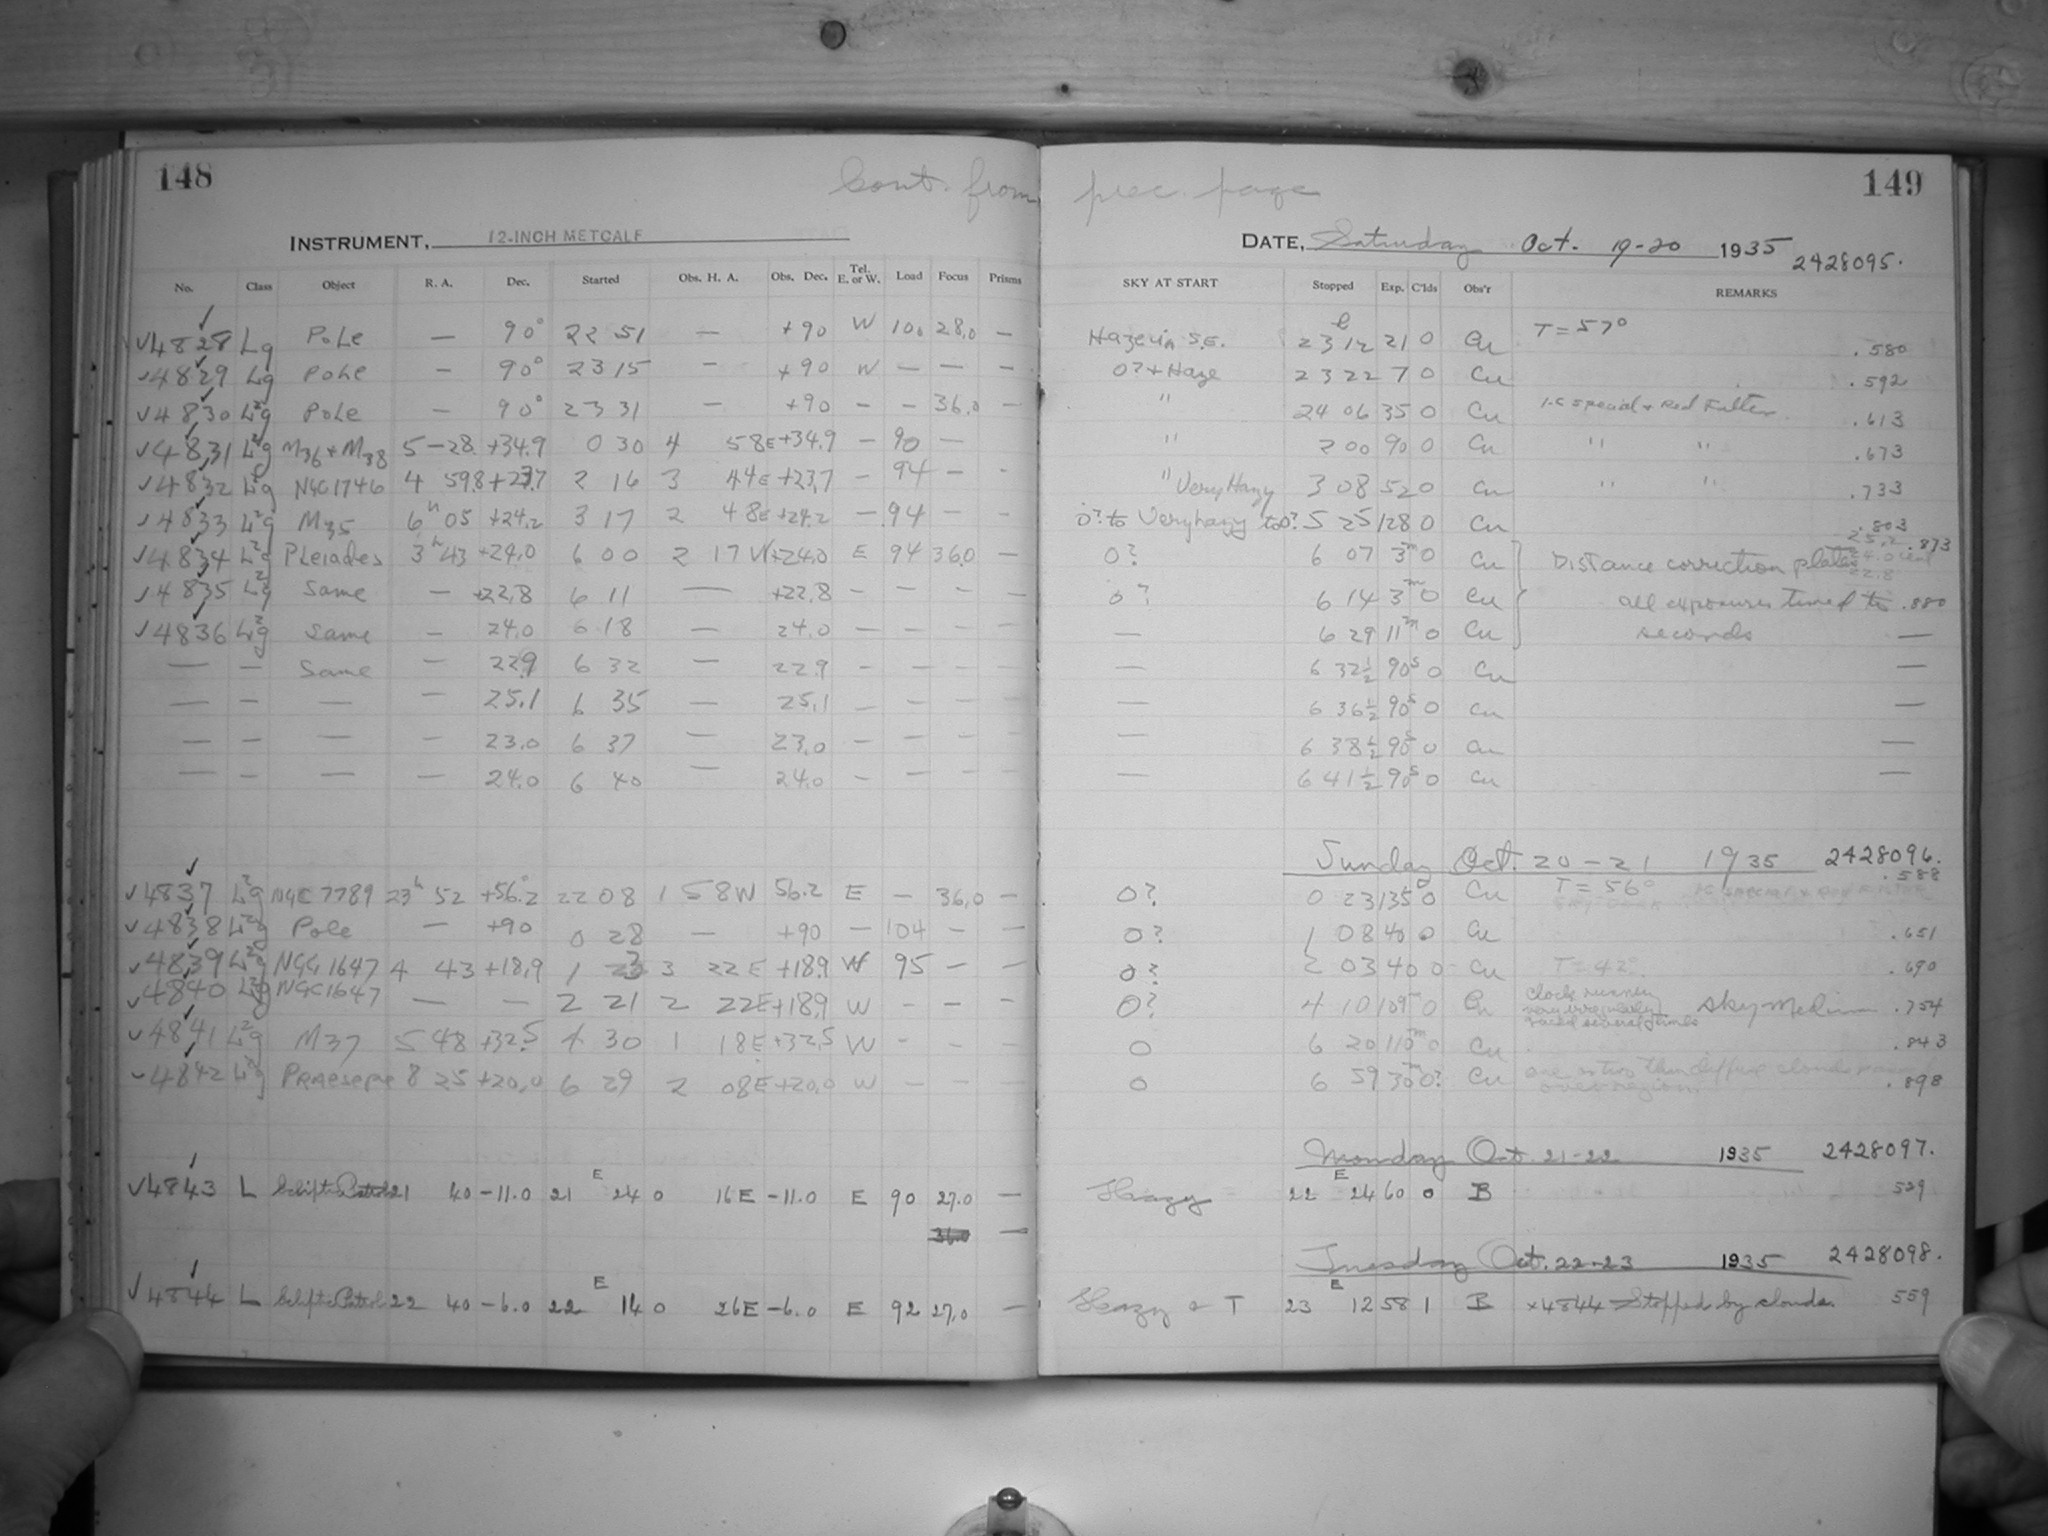 148
Cont. from prec. page
149
INSTRUMENT, 12-INCH METCALF
DATE, Saturday Oct. 19-20 1935 2428095.
No. Class Object R. A. Dec. Started Obs. H. A. Obs. Dec. Tel. E. or W. Load Focus Prisms SKY AT START Stopped Exp. C'lds Obs'r REMARKS
√4828 Lg Pole — 90° 22 51 — +90 W 100 28.0 — Haze in S.E. 23 12 21 0 Cu T = 57° .580
√4829 Lg Pole — 90° 23 15 — +90 W — — — 0? + Haze 23 22 7 0 Cu .592
√4830 L²g Pole — 90° 23 31 — +90 — — 36.0 — " 24 06 35 0 Cu I-C Special + Red Filter .613
√4831 L²g M36 + M38 5-28 +34.9 0 30 4 58E +34.9 — 90 — " 2 00 90 0 Cu " " .673
√4832 L²g NGC1746 4 59.8 +23.7 2 16 3 44E +23.7 — 94 — - " Very Hazy 3 08 52 0 Cu " " .733
√4833 L²g M35 6ʰ 05 +24.2 3 17 2 48E +24.2 — 94 - - 0? to Very hazy to 0? 5 25 128 0 Cu .803
√4834 L²g Pleiades 3ʰ 43 +24.0 6 00 2 17 W +24.0 E 94 36.0 — 0? 6 07 3ᵐ 0 Cu Distance correction plates .873
√4835 L²g Same — +22.8 6 11 — +22.8 — — — — 0? 6 14 3ᵐ 0 Cu all exposures timed to .880
√4836 L²g Same — 24.0 6 18 — 24.0 — — — — — 6 29 11ᵐ 0 Cu seconds —
— — Same — 22.9 6 32 — 22.9 — — — — — 6 32½ 90ˢ 0 Cu —
— — — — 25.1 6 35 — 25.1 — — — — — 6 36½ 90ˢ 0 Cu —
— — — — 23.0 6 37 — 23.0 — — — — — 6 38½ 90ˢ 0 Cu —
— — — — 24.0 6 40 — 24.0 — — — — — 6 41½ 90ˢ 0 Cu —
Sunday Oct. 20-21 1935 2428096.
√4837 L²g NGC 7789 23ʰ 52 +56.2° 22 08 1 58W 56.2 E — 36.0 — 0? 0 23 135 0 Cu T = 56° .588
√4838 L²g Pole — +90 0 28 — +90 — 104 — - 0? 1 08 40 0 Cu .651
√4839 L²g NGC 1647 4 43 +18.9 1 23 3 22E +18.9 W 95 — - 0? 2 03 40 0 Cu T = 42° .690
√4840 L²g NGC1647 — — 2 21 2 22E +18.9 W - - - 0? 4 10 109 0 Cu clock running very irregularly Sky Medium .754
√4841 L²g M37 5 48 +32.5 4 30 1 18E +32.5 W - - - 0 6 20 110ᵐ 0 Cu .843
√4842 L²g Praesepe 8 25 +20.0 6 29 2 08E +20.0 W - - - 0 6 59 30ᵐ 0? Cu over region .898
Monday Oct. 21-22 1935 2428097.
√4843 L Ecliptic Patrol 21 40 -11.0 21 E 24 0 16E -11.0 E 90 27.0 — Hazy 22 E 24 60 0 B 529
36.0 —
Tuesday Oct. 22-23 1935 2428098.
√4844 L Ecliptic Patrol 22 40 -6.0 22 E 14 0 26E -6.0 E 92 27.0 — Hazy + T 23 E 12 58 1 B ×4844 Stopped by clouds. 559